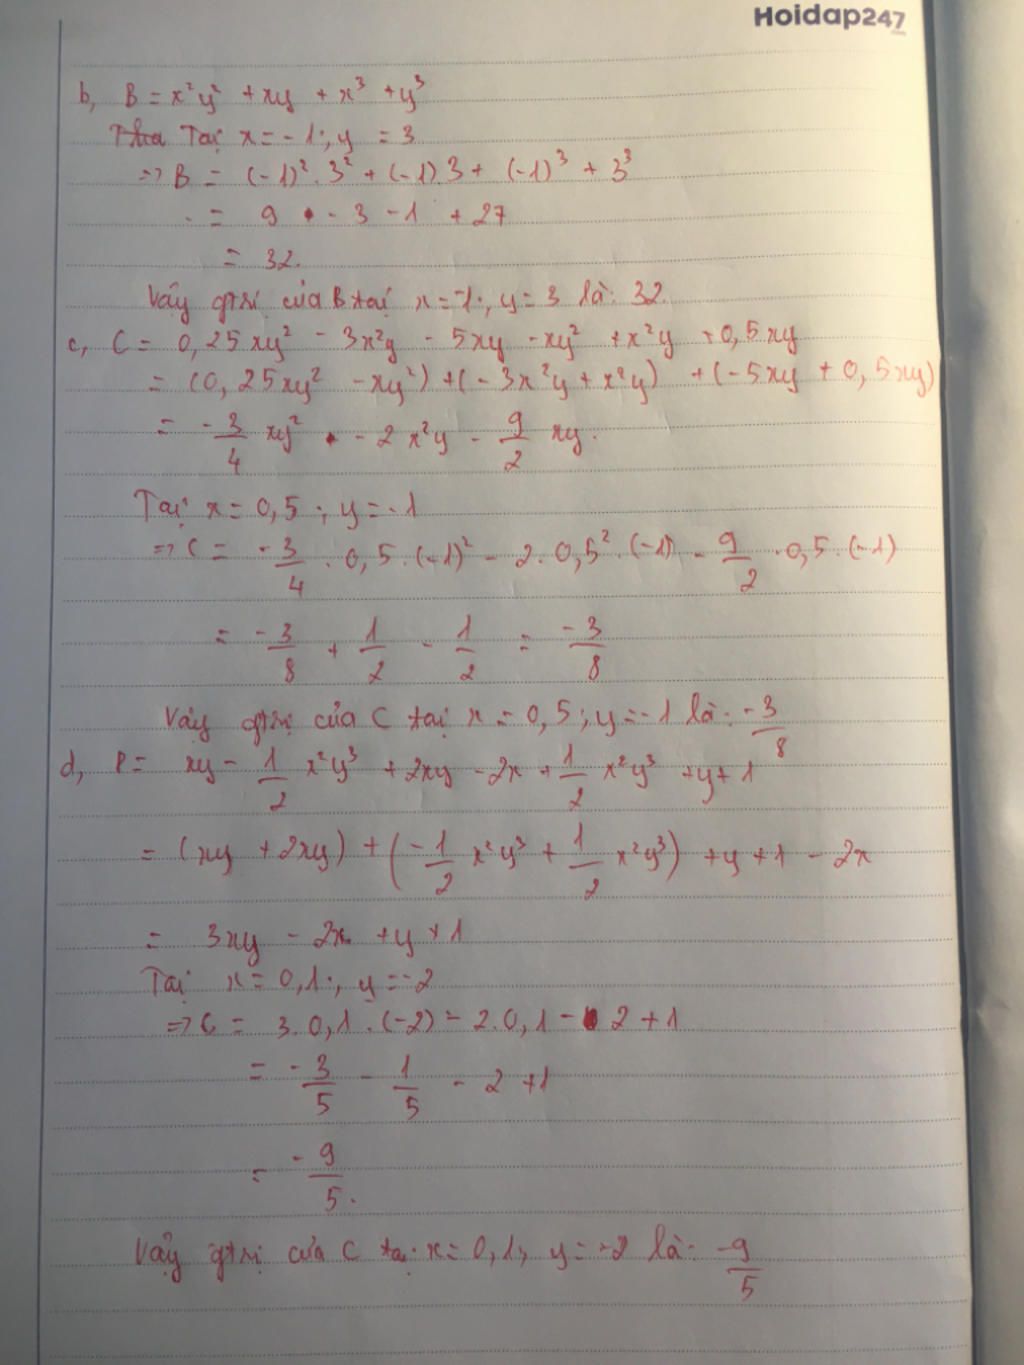 Hoidap247
b, B = x²y² + xy + x³ + y³
Tại x = -1; y = 3
=> B = (-1)². 3² + (-1).3 + (-1)³ + 3³
= 9 - 3 - 1 + 27
= 32.
Vậy gtrị của B tại x = -1; y = 3 là: 32
c, C = 0,25xy² - 3x²y - 5xy - xy² + x²y + 0,5xy
= (0,25xy² - xy²) + (-3x²y + x²y) + (-5xy + 0,5xy)
= -3/4 xy² - 2x²y - 9/2 xy.
Tại x = 0,5; y = -1
=> C = -3/4 . 0,5 . (-1)² - 2. 0,5² . (-1) - 9/2 . 0,5 . (-1)
= -3/8 + 1/2 - 1/2 = -3/8
Vậy gtrị của C tại x = 0,5; y = -1 là: -3/8
d, P = xy - 1/2 x²y³ + 2xy - 2x + 1/2 x²y³ + y + 1
= (xy + 2xy) + (-1/2 x²y³ + 1/2 x²y³) + y + 1 - 2x
= 3xy - 2x + y + 1
Tại x = 0,1; y = -2
=> C = 3. 0,1 . (-2) - 2. 0,1 - 2 + 1
= -3/5 - 1/5 - 2 + 1
= -9/5.
Vậy gtrị của C tại x = 0,1; y = -2 là: -9/5